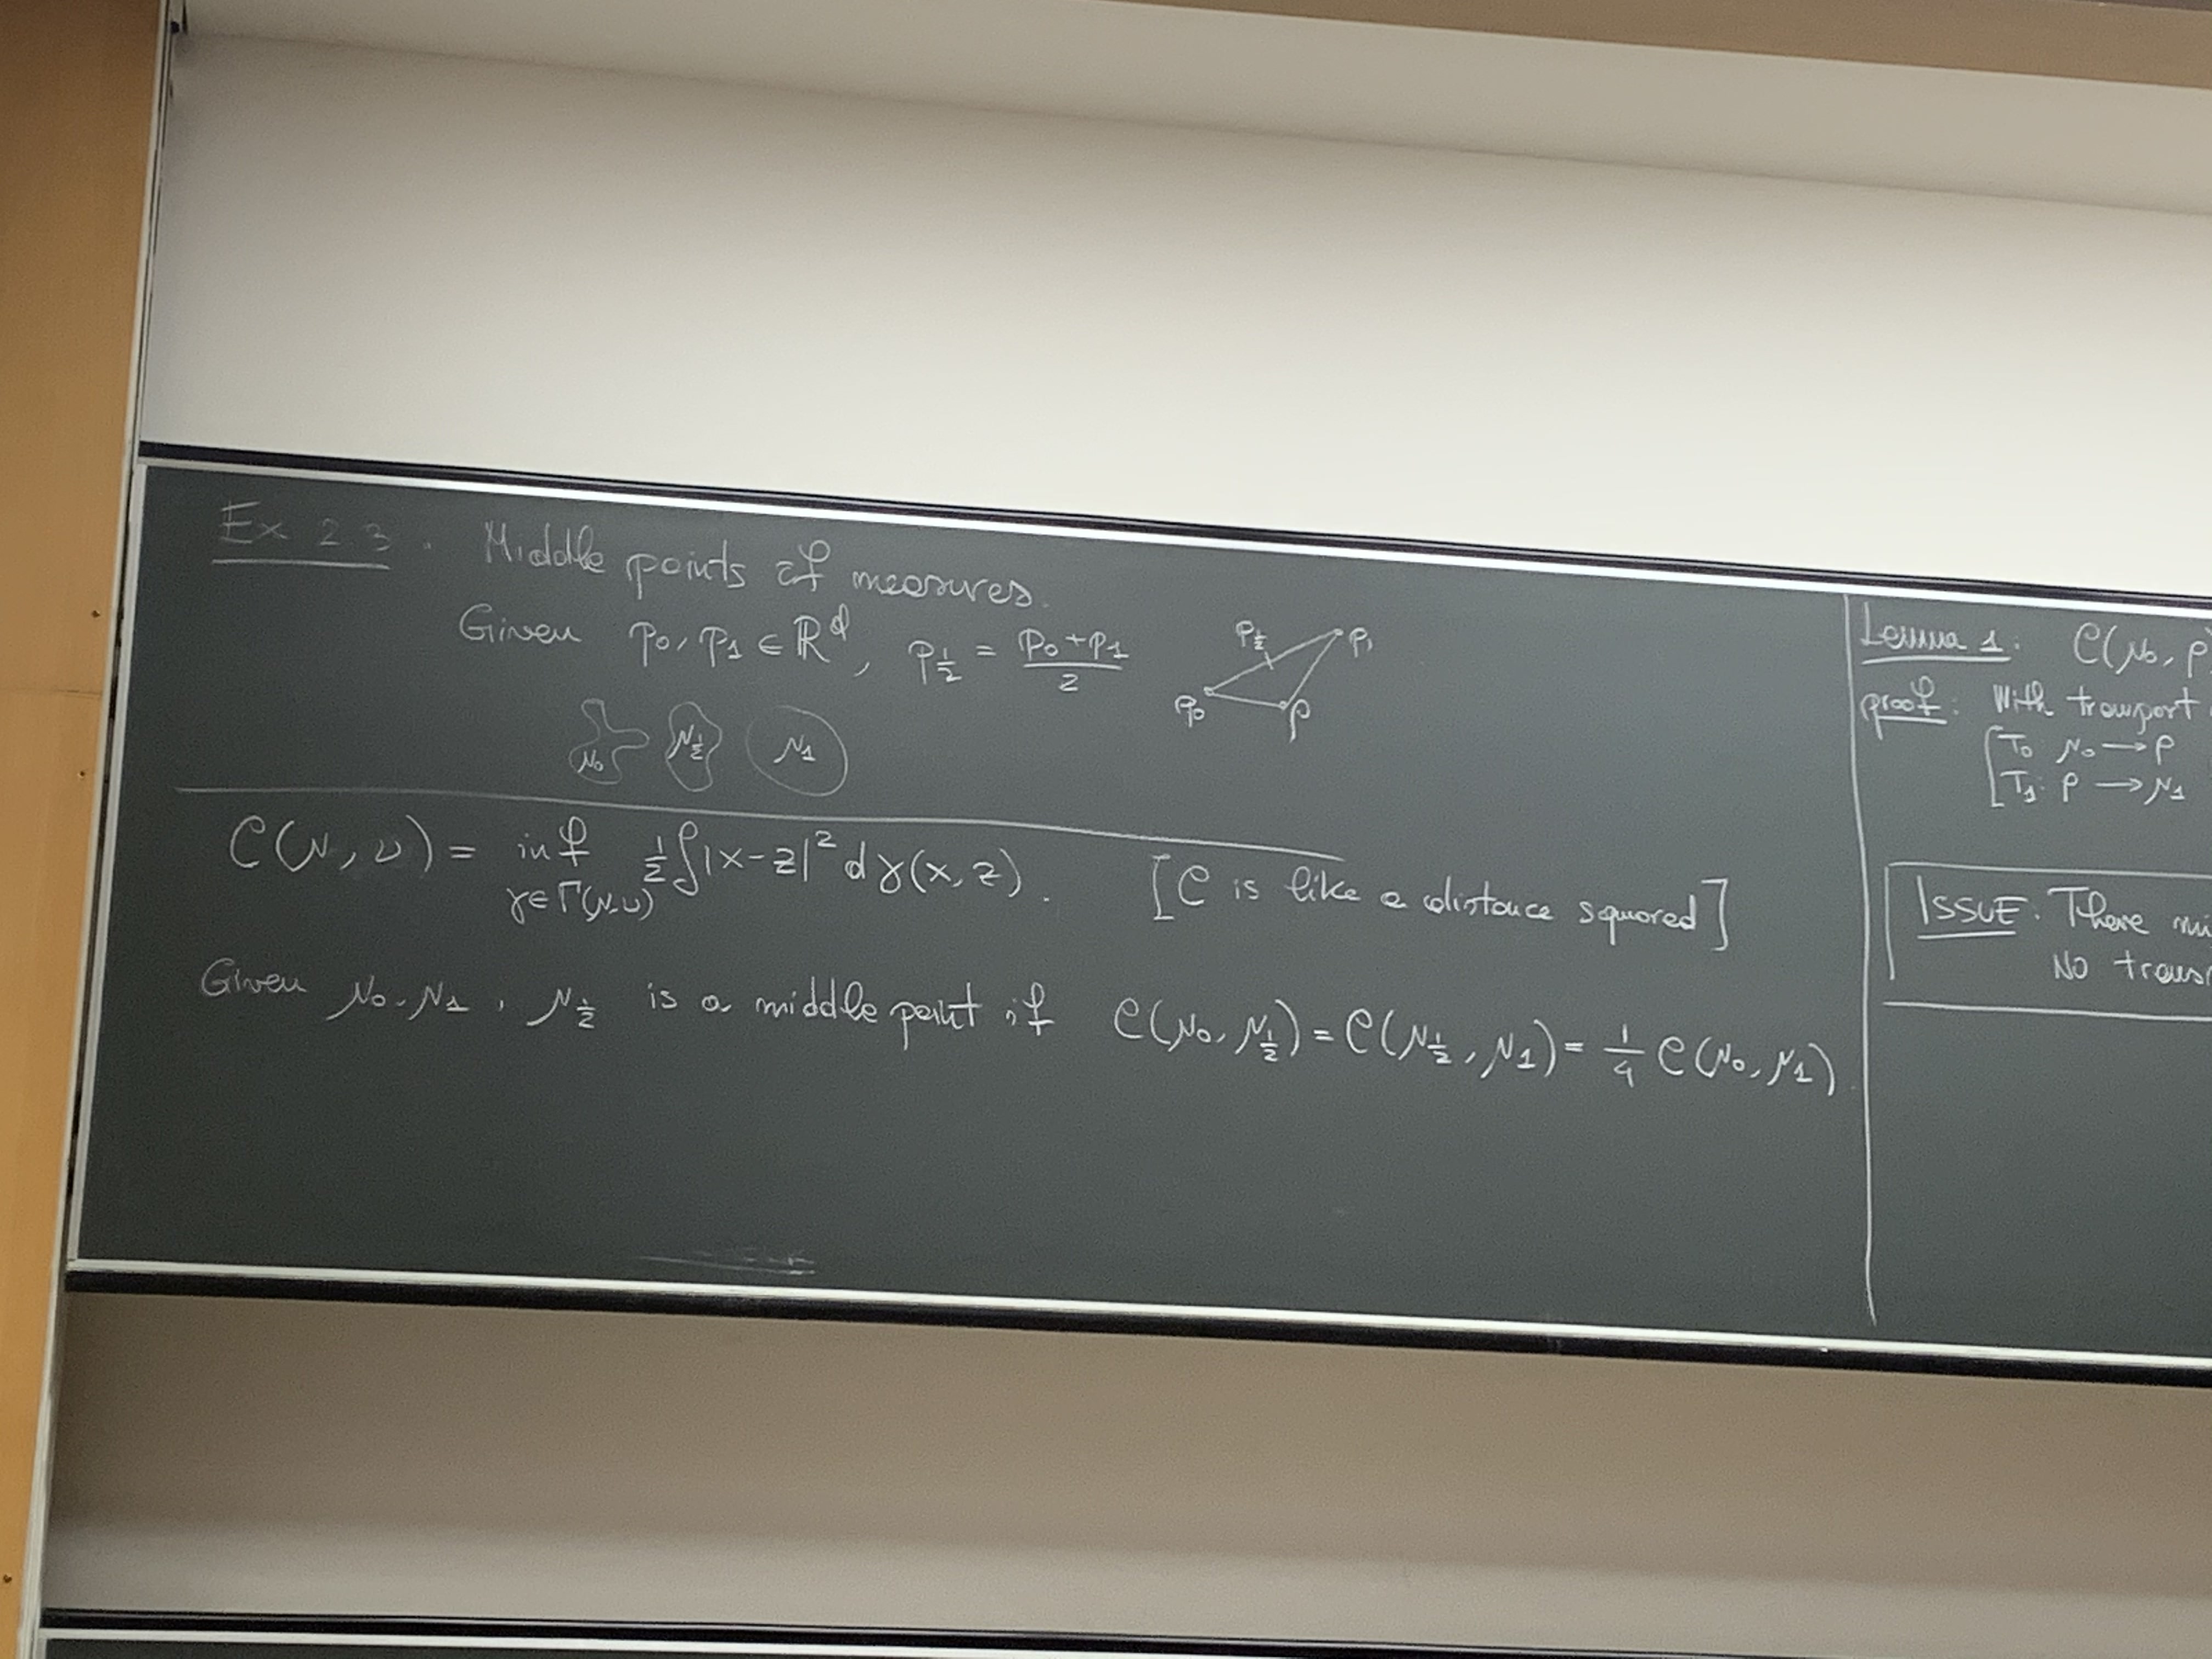 Ex 2.3. Middle points of measures.
Given p₀, p₁ ∈ ℝᵈ, p_{1/2} = (p₀+p₁)/2
p_{1/2} p₁
p₀ p
μ₀ μ_{1/2} μ₁
C(μ, ν) = inf_{γ∈Γ(μ,ν)} ½∫|x-z|² dγ(x,z). [C is like a distance squared]
Given μ₀, μ₁, μ_{1/2} is a middle point if C(μ₀, μ_{1/2}) = C(μ_{1/2}, μ₁) = ¼ C(μ₀, μ₁).
Lemma 1: C(μ₀, ρ
proof: With transport
T₀ μ₀ → ρ
T₁: ρ → μ₁
ISSUE: There
No